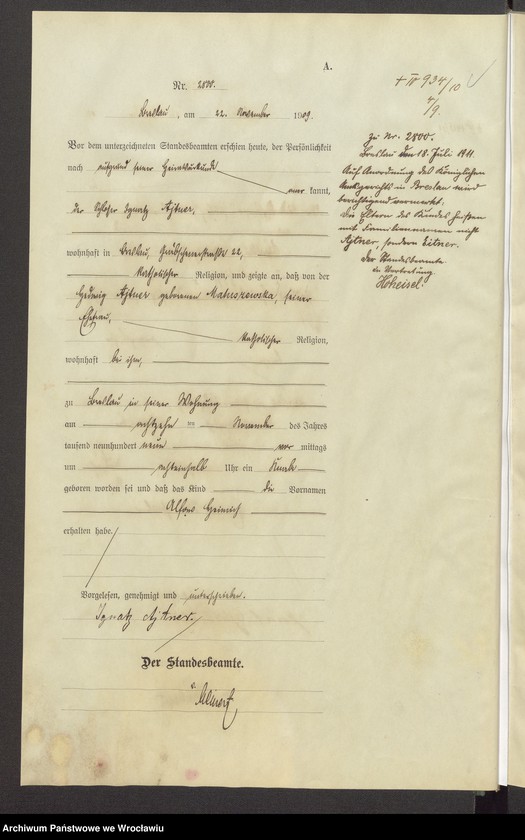 A.
Nr. 2800.
Breslau, am 22. November 1909.
Vor dem unterzeichneten Standesbeamten erschien heute, der Persönlichkeit
nach auf Grund seiner Heiratsurkunde
anerkannt,
der Schlosser Ignatz Ajtner,
wohnhaft in Breslau, Gräbschenerstraße 22,
katholischer Religion, und zeigte an, daß von der
Hedwig Ajtner geborenen Matuszewska, seiner
Ehefrau,
katholischer Religion,
wohnhaft bei ihm,
zu Breslau in seiner Wohnung
am achtzehn ten November des Jahres
tausend neunhundert neun vor mittags
um achteinhalb Uhr ein Knabe
geboren worden sei und daß das Kind die Vornamen
Alfons Heinrich
erhalten habe.
Vorgelesen, genehmigt und unterschrieben.
Ignatz Ajtner.
Der Standesbeamte.
+ II 934/10
4/9.
Zu Nr. 2800.
Breslau den 18. Juli 1911.
Auf Anordnung des Königlichen
Amtsgerichts in Breslau wird
berichtigend vermerkt:
Die Eltern des Kindes heißen
mit Familiennamen nicht
Ajtner, sondern Eitner.
Der Standesbeamte
in Vertretung
Hoheisel.
Archiwum Państwowe we Wrocławiu